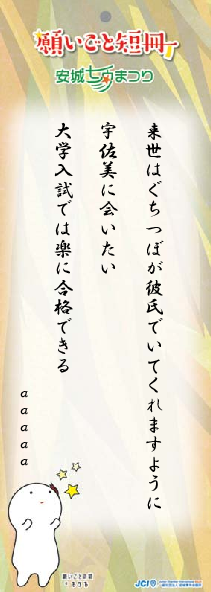 願いごと短冊
安城七夕まつり
来世はぐちつぼが彼氏でいてくれますように
宇佐美に会いたい
大学入試では楽に合格できる
aaaaa
願いごと短冊
JCI